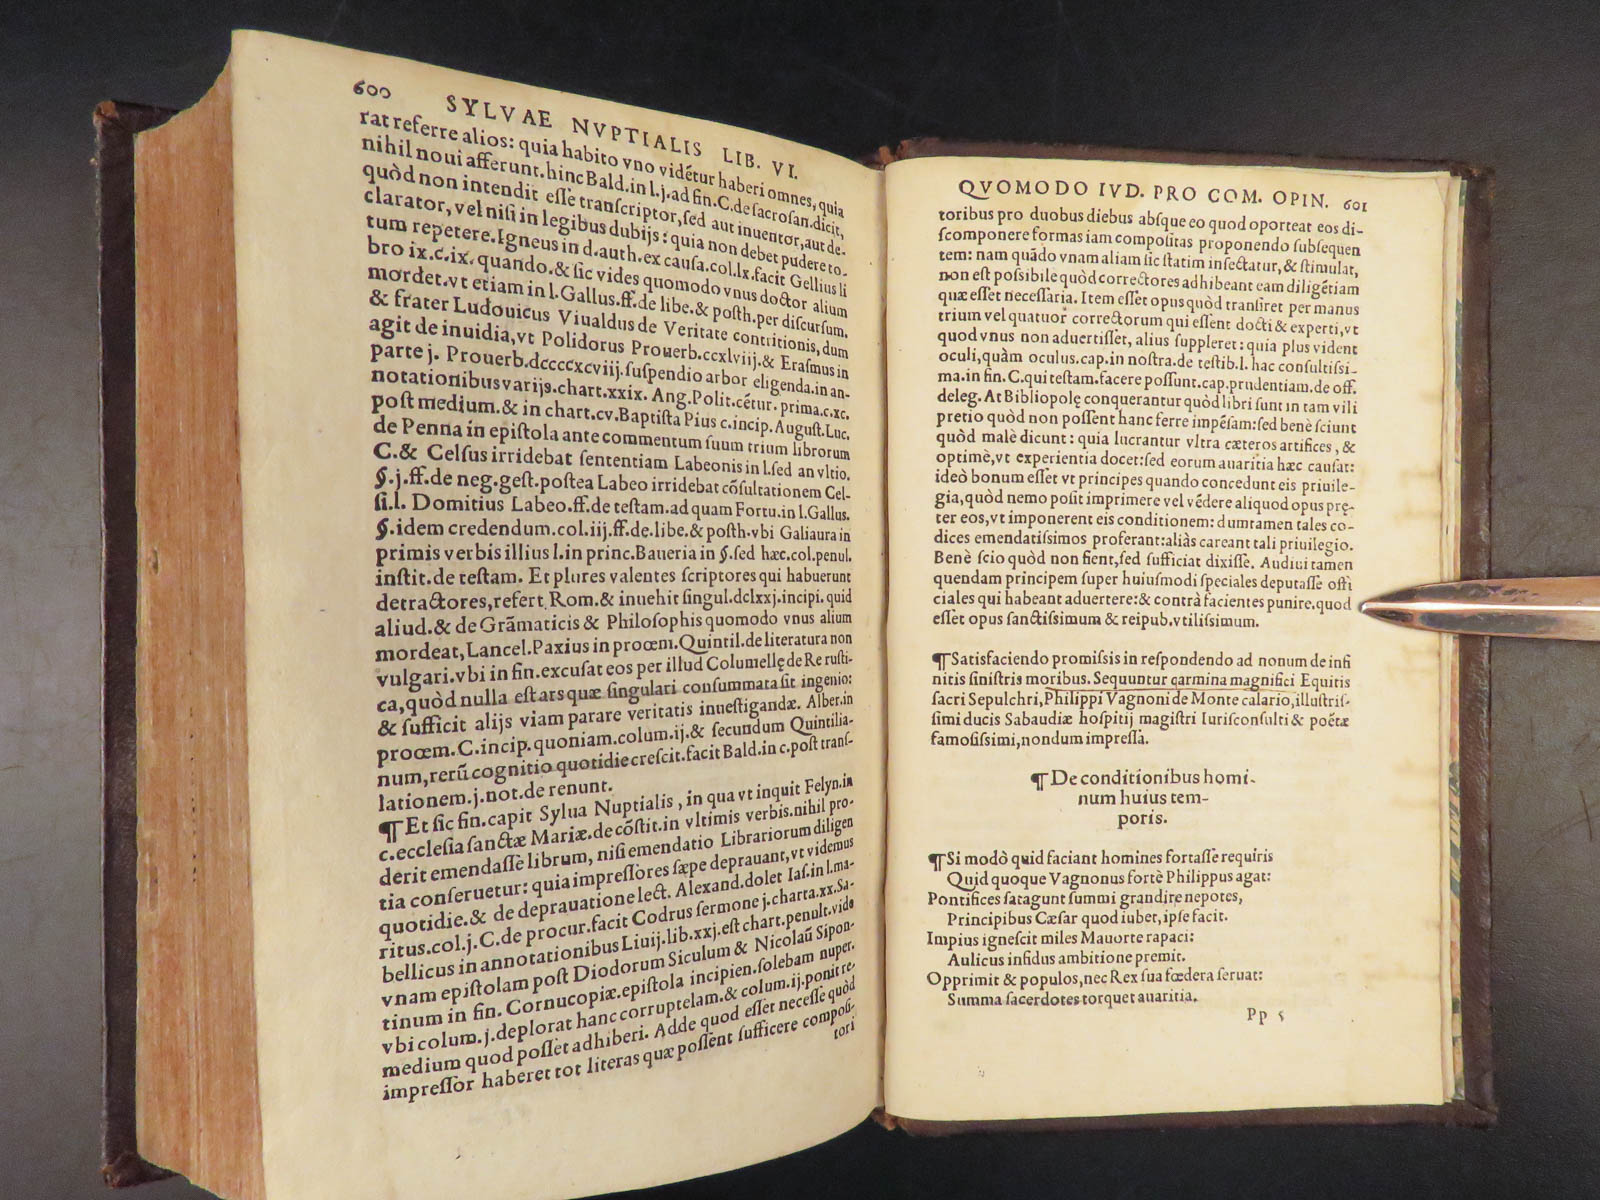 600 SYLVAE NVPTIALIS LIB. VI.
rat referre alios: quia habito vno vidētur haberi omnes, quia
nihil noui afferunt. hinc Bald. in l. j. ad fin. C. de sacrosan. dicit,
quòd non intendit esse transcriptor, sed aut inuentor, aut de-
clarator, vel nisi in legibus dubijs: quia non debet pudere to-
tum repetere. Igneus in d. auth. ex causa. col. lx. facit Gellius li
bro ix. c. ix. quando. & sic vides quomodo vnus doctor alium
mordet. vt etiam in l. Gallus. ff. de libe. & posth. per discursum.
& frater Ludouicus Viualdus de Veritate contritionis, dum
agit de inuidia, vt Polidorus Prouerb. ccxlviij. & Erasmus in
parte j. Prouerb. dccccxcviij. suspendio arbor eligenda. in an-
notationibus varijs. chart. xxix. Ang. Polit. cētur. prima. c. xc.
post medium. & in chart. cv. Baptista Pius c. incip. August. Luc.
de Penna in epistola ante commentum suum trium librorum
C. & Celsus irridebat sententiam Labeonis in l. sed an vltio.
§. j. ff. de neg. gest. postea Labeo irridebat cōsultationem Cel-
si. l. Domitius Labeo. ff. de testam. ad quam Fortu. in l. Gallus.
§. idem credendum. col. iij. ff. de. libe. & posth. vbi Galiaura in
primis verbis illius l. in princ. Baueria in §. sed hæc. col. penul.
instit. de testam. Et plures valentes scriptores qui habuerunt
detractores, refert Rom. & inuehit singul. dclxxj. incipi. quid
aliud. & de Grāmaticis & Philosophis quomodo vnus alium
mordeat, Lancel. Paxius in proœm. Quintil. de literatura non
vulgari. vbi in fin. excusat eos per illud Columellę de Re rusti-
ca, quòd nulla est ars quæ singulari consummata sit ingenio:
& sufficit alijs viam parare veritatis inuestigandæ. Alber. in
proœm. C. incip. quoniam. colum. ij. & secundum Quintilia-
num, rerū cognitio quotidie crescit. facit Bald. in c. post trans-
lationem. j. not. de renunt.
¶ Et sic fin. capit Sylua Nuptialis, in qua vt inquit Felyn. in
c. ecclesia sanctæ Mariæ. de cōstit. in vltimis verbis. nihil pro-
derit emendasse librum, nisi emendatio Librariorum diligen
tia conseruetur: quia impressores sæpe deprauant, vt videmus
quotidie. & de deprauatione lect. Alexand. dolet Ias. in l. ma-
ritus. col. j. C. de procur. facit Codrus sermone j. charta. xx. Sa-
bellicus in annotationibus Liuij. lib. xxj. est chart. penult. vide
vnam epistolam post Diodorum Siculum & Nicolaū Sipon-
tinum in fin. Cornucopiæ. epistola incipien. solebam nuper.
vbi colum. j. deplorat hanc corruptelam. & colum. ij. ponit re-
medium quod posset adhiberi. Adde quod esset necesse quòd
impressor haberet tot literas quæ possent sufficere composi-
tori
QVOMODO IVD. PRO COM. OPIN. 601
toribus pro duobus diebus absque eo quod oporteat eos di-
scomponere formas iam compositas proponendo subsequen
tem: nam quādo vnam aliam sic statim insectatur, & stimulat,
non est possibile quòd correctores adhibeant eam diligētiam
quæ esset necessaria. Item esset opus quòd transiret per manus
trium vel quatuor correctorum qui essent docti & experti, vt
quod vnus non aduertisset, alius suppleret: quia plus vident
oculi, quàm oculus. cap. in nostra. de testib. l. hac consultissi-
ma. in fin. C. qui testam. facere possunt. cap. prudentiam. de off.
deleg. At Bibliopolę conquerantur quòd libri sunt in tam vili
pretio quòd non possent hanc ferre impēsam: sed benè sciunt
quòd malè dicunt: quia lucrantur vltra cæteros artifices, &
optimè, vt experientia docet: sed eorum auaritia hæc causat:
ideò bonum esset vt principes quando concedunt eis priuile-
gia, quòd nemo possit imprimere vel vēdere aliquod opus prę-
ter eos, vt imponerent eis conditionem: dumtamen tales co-
dices emendatissimos proferant: aliàs careant tali priuilegio.
Benè scio quòd non fient, sed sufficiat dixisse. Audiui tamen
quendam principem super huiusmodi speciales deputasse offi
ciales qui habeant aduertere: & contrà facientes punire. quod
esset opus sanctissimum & reipub. vtilissimum.
¶ Satisfaciendo promissis in respondendo ad nonum de infi
nitis sinistris moribus. Sequuntur carmina magnifici Equitis
sacri Sepulchri, Philippi Vagnoni de Monte calario, illustris-
simi ducis Sabaudiæ hospitij magistri Iurisconsulti & poëtæ
famosissimi, nondum impressa.
¶ De conditionibus homi-
num huius tem-
poris.
¶ Si modò quid faciant homines fortasse requiris
Quid quoque Vagnonus fortè Philippus agat:
Pontifices satagunt summi grandire nepotes,
Principibus Cæsar quod iubet, ipse facit.
Impius ignescit miles Mauorte rapaci:
Aulicus infidus ambitione premit.
Opprimit & populos, nec Rex sua fœdera seruat:
Summa sacerdotes torquet auaritia.
Pp 5